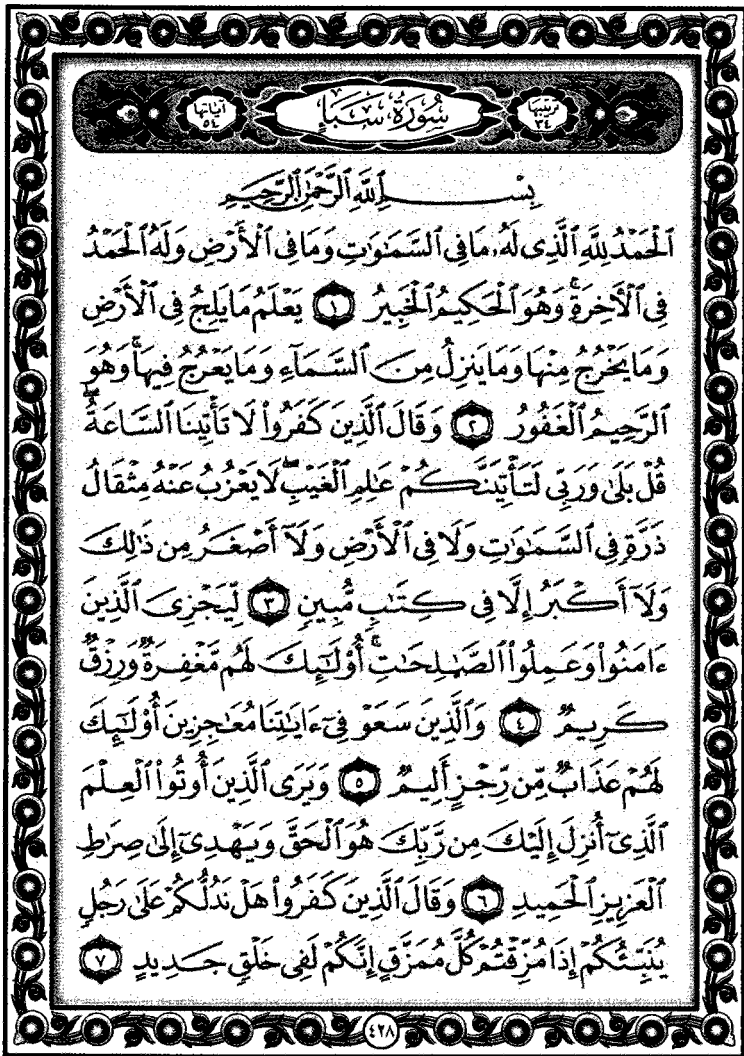 ترتيبها ٣٤ سُورَةُ سَبَإٍ آياتها ٥٤
بِسْمِ ٱللَّهِ ٱلرَّحْمَٰنِ ٱلرَّحِيمِ
ٱلْحَمْدُ لِلَّهِ ٱلَّذِى لَهُۥ مَا فِى ٱلسَّمَٰوَٰتِ وَمَا فِى ٱلْأَرْضِ وَلَهُ ٱلْحَمْدُ
فِى ٱلْءَاخِرَةِ ۚ وَهُوَ ٱلْحَكِيمُ ٱلْخَبِيرُ ١ يَعْلَمُ مَا يَلِجُ فِى ٱلْأَرْضِ
وَمَا يَخْرُجُ مِنْهَا وَمَا يَنزِلُ مِنَ ٱلسَّمَآءِ وَمَا يَعْرُجُ فِيهَا ۚ وَهُوَ
ٱلرَّحِيمُ ٱلْغَفُورُ ٢ وَقَالَ ٱلَّذِينَ كَفَرُوا۟ لَا تَأْتِينَا ٱلسَّاعَةُ ۖ
قُلْ بَلَىٰ وَرَبِّى لَتَأْتِيَنَّكُمْ عَٰلِمِ ٱلْغَيْبِ ۖ لَا يَعْزُبُ عَنْهُ مِثْقَالُ
ذَرَّةٍ فِى ٱلسَّمَٰوَٰتِ وَلَا فِى ٱلْأَرْضِ وَلَآ أَصْغَرُ مِن ذَٰلِكَ
وَلَآ أَكْبَرُ إِلَّا فِى كِتَٰبٍ مُّبِينٍ ٣ لِّيَجْزِىَ ٱلَّذِينَ
ءَامَنُوا۟ وَعَمِلُوا۟ ٱلصَّٰلِحَٰتِ ۚ أُو۟لَٰٓئِكَ لَهُم مَّغْفِرَةٌ وَرِزْقٌ
كَرِيمٌ ٤ وَٱلَّذِينَ سَعَوْ فِىٓ ءَايَٰتِنَا مُعَٰجِزِينَ أُو۟لَٰٓئِكَ
لَهُمْ عَذَابٌ مِّن رِّجْزٍ أَلِيمٌ ٥ وَيَرَى ٱلَّذِينَ أُوتُوا۟ ٱلْعِلْمَ
ٱلَّذِىٓ أُنزِلَ إِلَيْكَ مِن رَّبِّكَ هُوَ ٱلْحَقَّ وَيَهْدِىٓ إِلَىٰ صِرَٰطِ
ٱلْعَزِيزِ ٱلْحَمِيدِ ٦ وَقَالَ ٱلَّذِينَ كَفَرُوا۟ هَلْ نَدُلُّكُمْ عَلَىٰ رَجُلٍ
يُنَبِّئُكُمْ إِذَا مُزِّقْتُمْ كُلَّ مُمَزَّقٍ إِنَّكُمْ لَفِى خَلْقٍ جَدِيدٍ ٧
٤٢٨